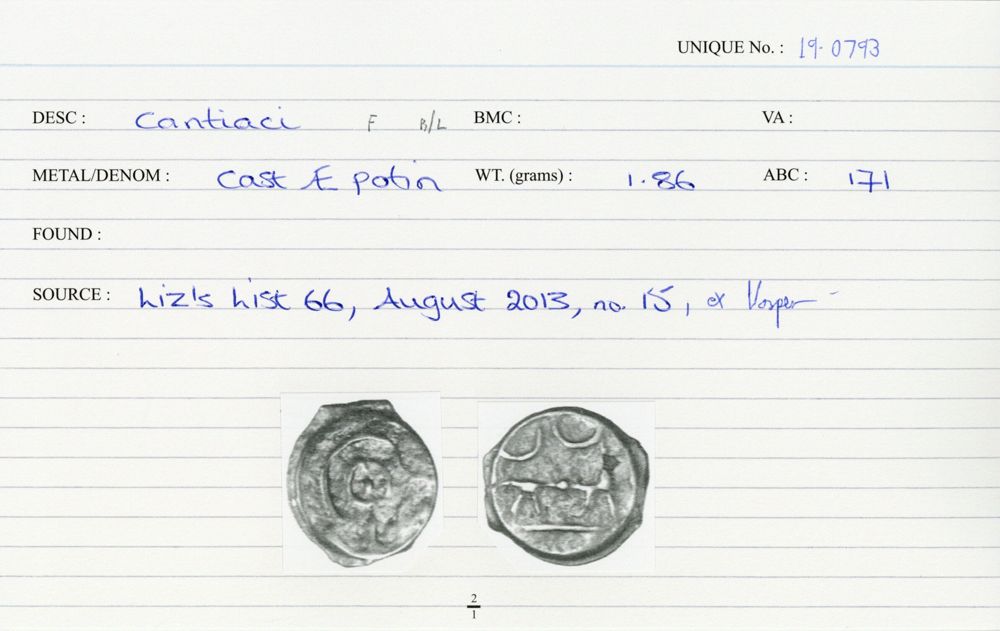 UNIQUE No. : 19-0793
DESC : Cantiaci F B/L BMC : VA :
METAL/DENOM : Cast Æ potin WT. (grams) : 1.86 ABC : 171
FOUND :
SOURCE : Liz's List 66, August 2013, no. 15, ex Vosper
2
1